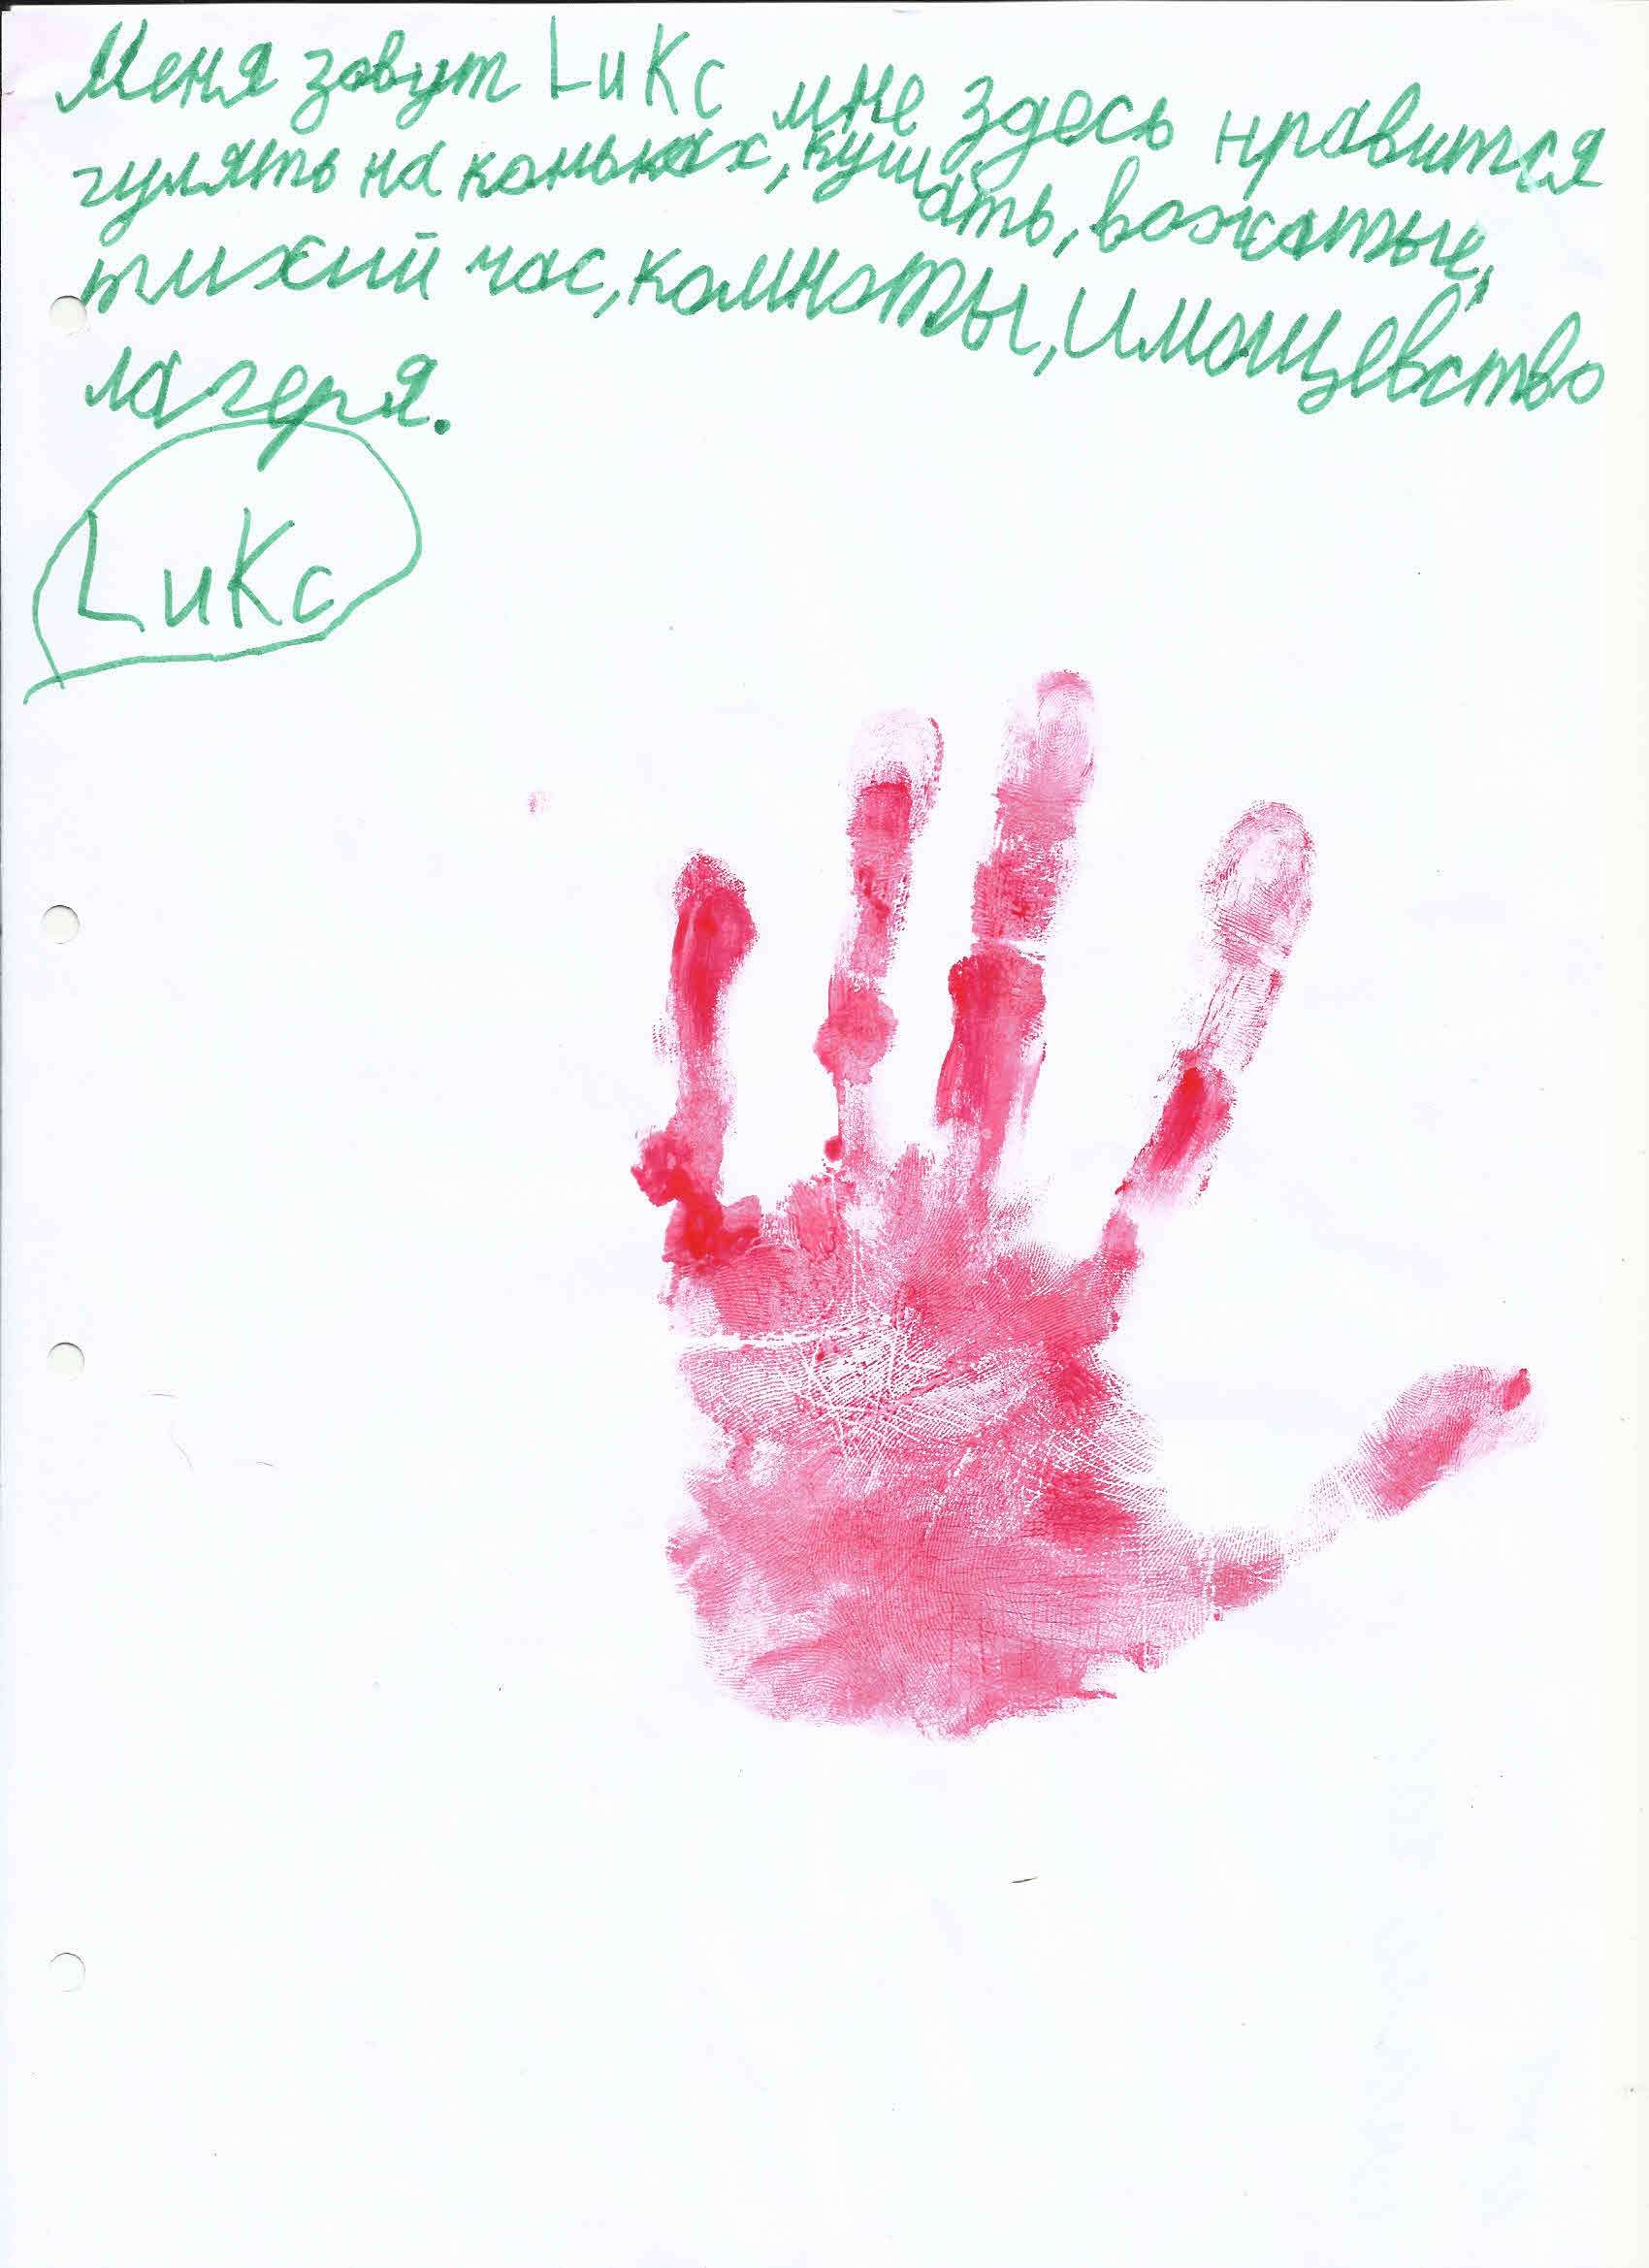 Меня зовут LuКс мне здесь нравится
гулять на коньках, кушать, вожатые,
тихий час, комнаты, имощевство
лагеря.
LuКс